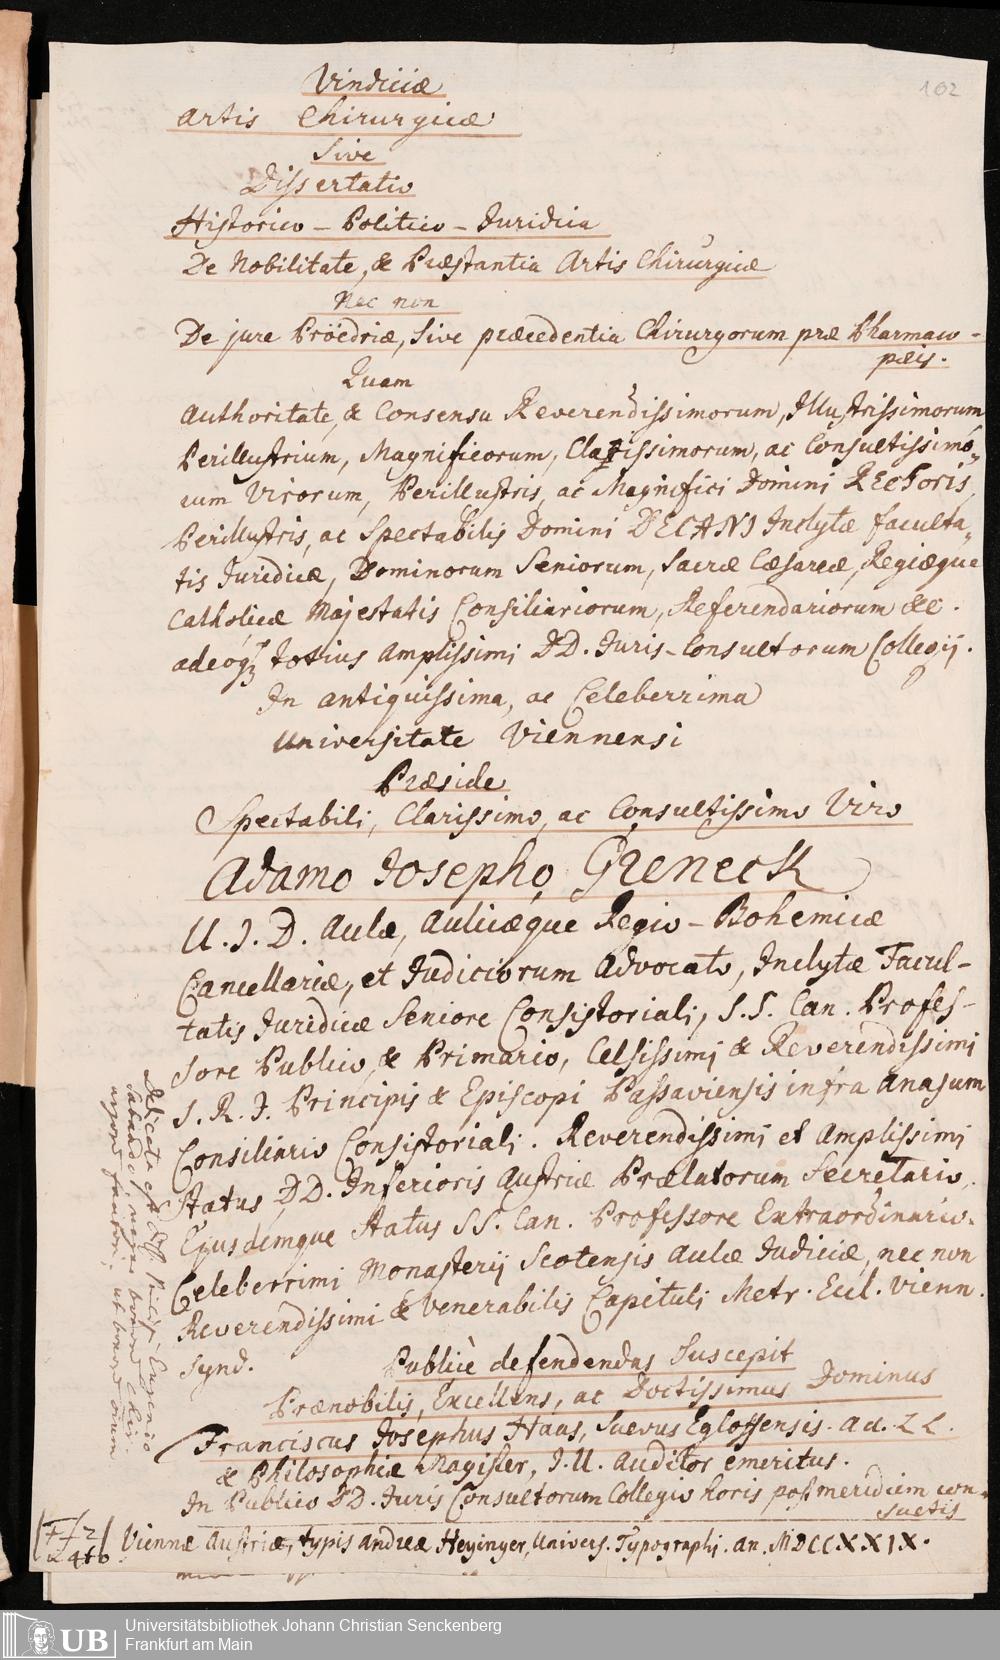 102
Vindiciæ
Artis Chirurgicæ
Sive
Dissertatio
Historico - Politico - Juridica
De Nobilitate, & Præstantia Artis Chirurgicæ
Nec non
De jure Pröedriæ, Sive præcedentia Chirurgorum præ Pharmaco-
pæis.
Quam
Authoritate, & Consensu Reverendissimorum, Illustrissimorum
Perillustrium, Magnificorum, Clarissimorum, ac Consultissimo„
rum Virorum, Perillustris, ac Magnifici Domini RECtoris,
Perillustris, ac Spectabilis Domini DECANI Inclytæ faculta„
tis Juridicæ, Dominorum Seniorum, Sacræ Cæsareæ, Regiæque
Catholicæ Majestatis Consiliariorum, Referendariorum &c.
adeoq3 totius Amplissimi DD. Juris-Consultorum Collegij.
In antiquissima, ac Celeberrima
Universitate Viennensi
Præside
Spectabili, Clarissimo, ac Consultissimo Viro
Adamo Josepho Greneck
U. J. D. Aulæ, Aulicæque Regio-Bohemicæ
Cancellariæ, et Judiciorum Advocato, Inclytæ Facul-
tatis Juridicæ Seniore Consistoriali, S.S. Can. Profes-
sore Publico, & Primario, Celsissimi & Reverendissimi
S. R. J. Principis & Episcopi Passaviensis infra Anasum
Consiliario Consistoriali. Reverendissimi et Amplissimi
Status DD. Inferioris Austriæ Prælatorum Secretario,
Ejusdemque Status SS. Can. Professore Extraordinario.
Celeberrimi Monasterij Scotensis Aulæ Judiciæ, nec non
Reverendissimi & Venerabilis Capituli Metr. Eccl. Vienn.
Synd.
Publicè defendendas Suscepit
Prænobilis, Excellens, ac Doctissimus Dominus
Franciscus Josephus Haas, Suevus Egloffensis. AA. LL.
& Philosophiæ Magister, J. U. Auditor emeritus.
In Publico DD. Juris Consultorum Collegio horis postmeridiem con-
suetis
Viennæ Austriæ, typis Andreæ Heyinger, Univers. Typographi. an. MDCCXXIX.
Dedicata est Diss.
Universitätsbibliothek Johann Christian Senckenberg
Frankfurt am Main
UB